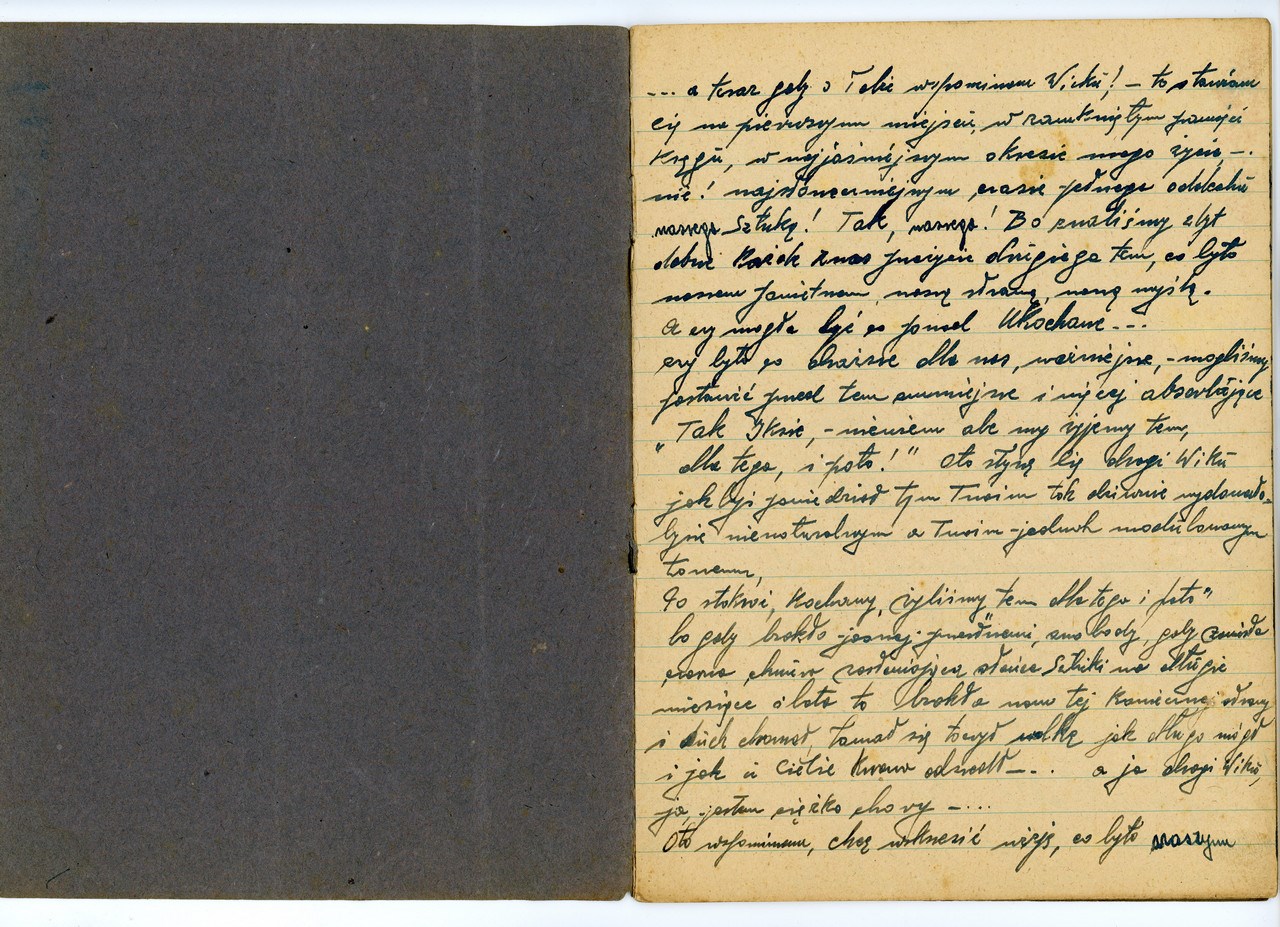 ... a teraz gdy o Tobie wspominam Wicku! – to stawiam
Cię na pierwszym miejscu, w zamkniętym pamięci
Kręgu, w najjaśniejszym okresie mego życia, –.
nie! najsłoneczniejszym czasie jednego oddechu
naszego Sztuką! Tak, naszego! Bo znaliśmy zbyt
dobrze Każdk z nas przeżycie drugiego tem, co było
naszem pamiętnem, naszą strawą, naszą myślą.
A czy mogło być co ponad Ukochane ---
czy było co droższe dla nas, ważniejsze, – mogliśmy
postawić przed tem cenniejsze i więcej absorbujące
"Tak Iksie, – niewiem ale my żyjemy tem,
dla tego, i poto!" Oto słyszę Cię drogi Wiku
jak byś powiedział tym Twoim tak dziwnie wydawało-
byśie nienaturalnym a Twoim jednak modulowanym
tonem,
Po stokroć, Kochany, "żyliśmy tem dla tego i poto"
bo gdy brakło jasnej przestrzeni, swobody, gdy zawisła
czarna chmura zasłaniająca słońce Sztuki na długie
miesiące i lata to brakło nam tej Koniecznej strawy
i duch chramał, łamał się toczył walkę jak długo mógł
i jak u Ciebie Krwawo odszedł –... a ja drogi Wiku,
ja, jestem ciężko chory –...
Oto wspominam, chcę wskrzesić wizję, co było naszym